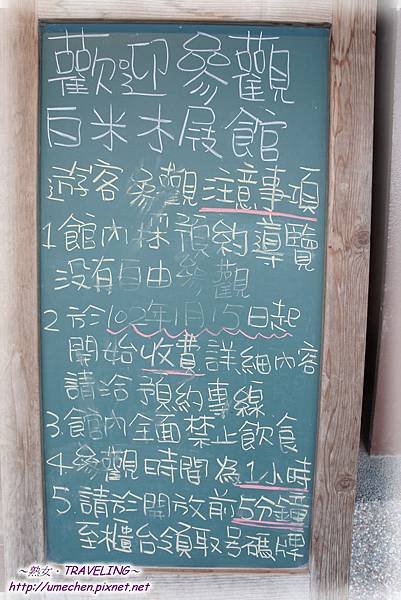 歡迎參觀
白米木展館
遊客參觀注意事項
1館內採預約導覽
沒有自由參觀
2於102年1月15日起
開始收費詳細內容
請洽預約專線
3館內全面禁止飲食
4參觀時間為1小時
5.請於開放前5分鐘
至櫃台領取号碼牌
~熟女‧TRAVELING~
http://umechen.pixnet.net